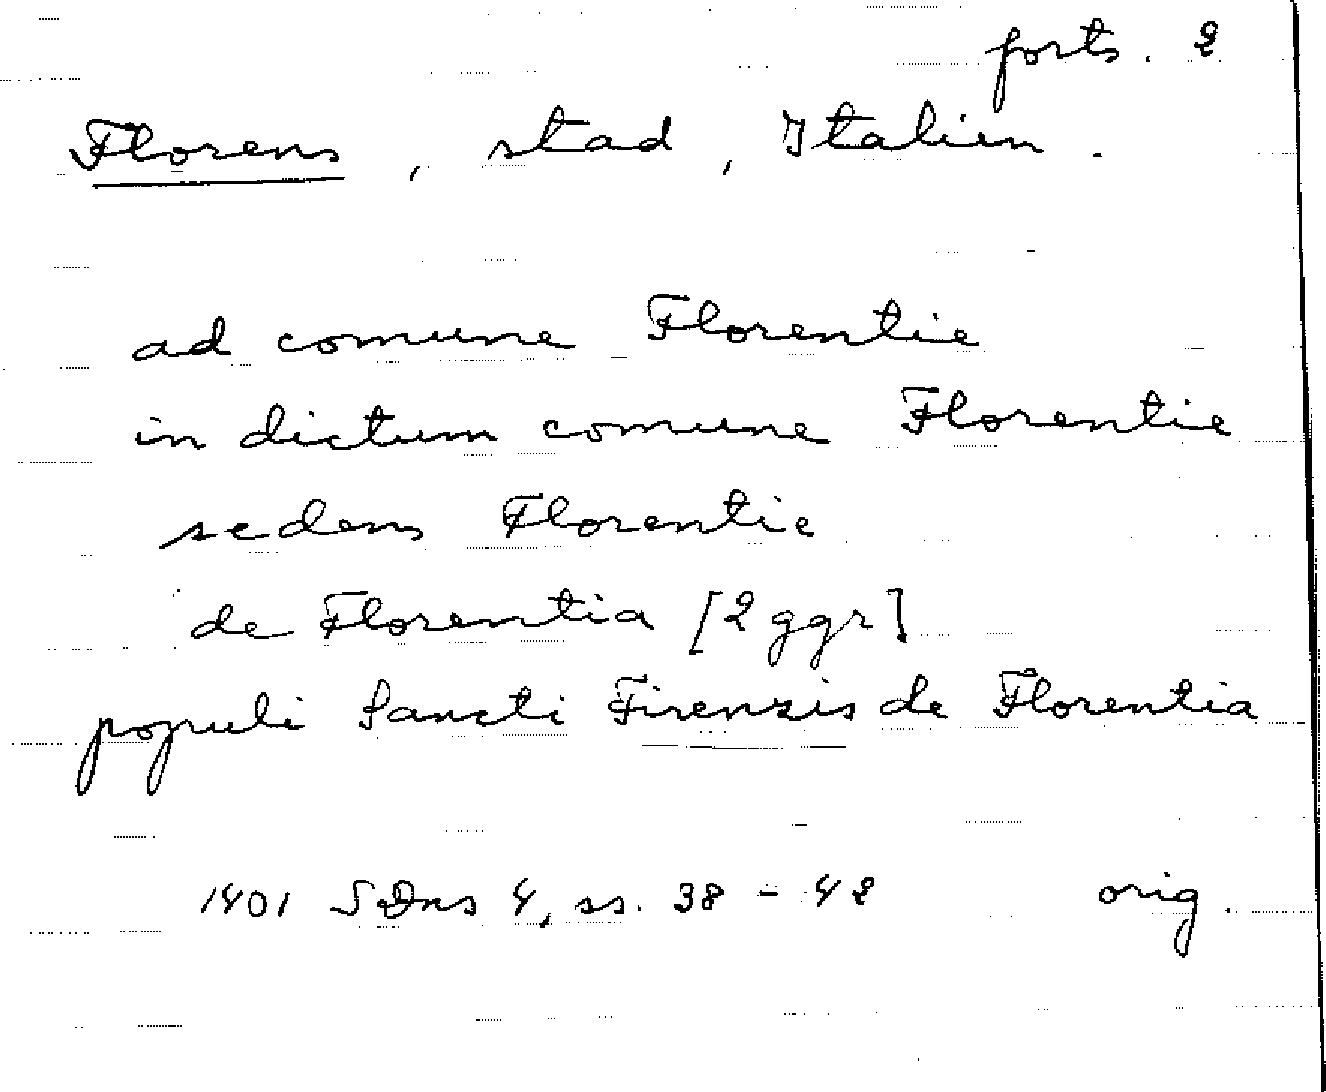 forts. 2
Florens, stad, Italien.
ad comune Florentie
in dictum comune Florentie
sedens Florentie
de Florentia [2 ggr]
populi Sancti Firenzis de Florentia
1401 SDns 4, ss. 38 - 42 orig.